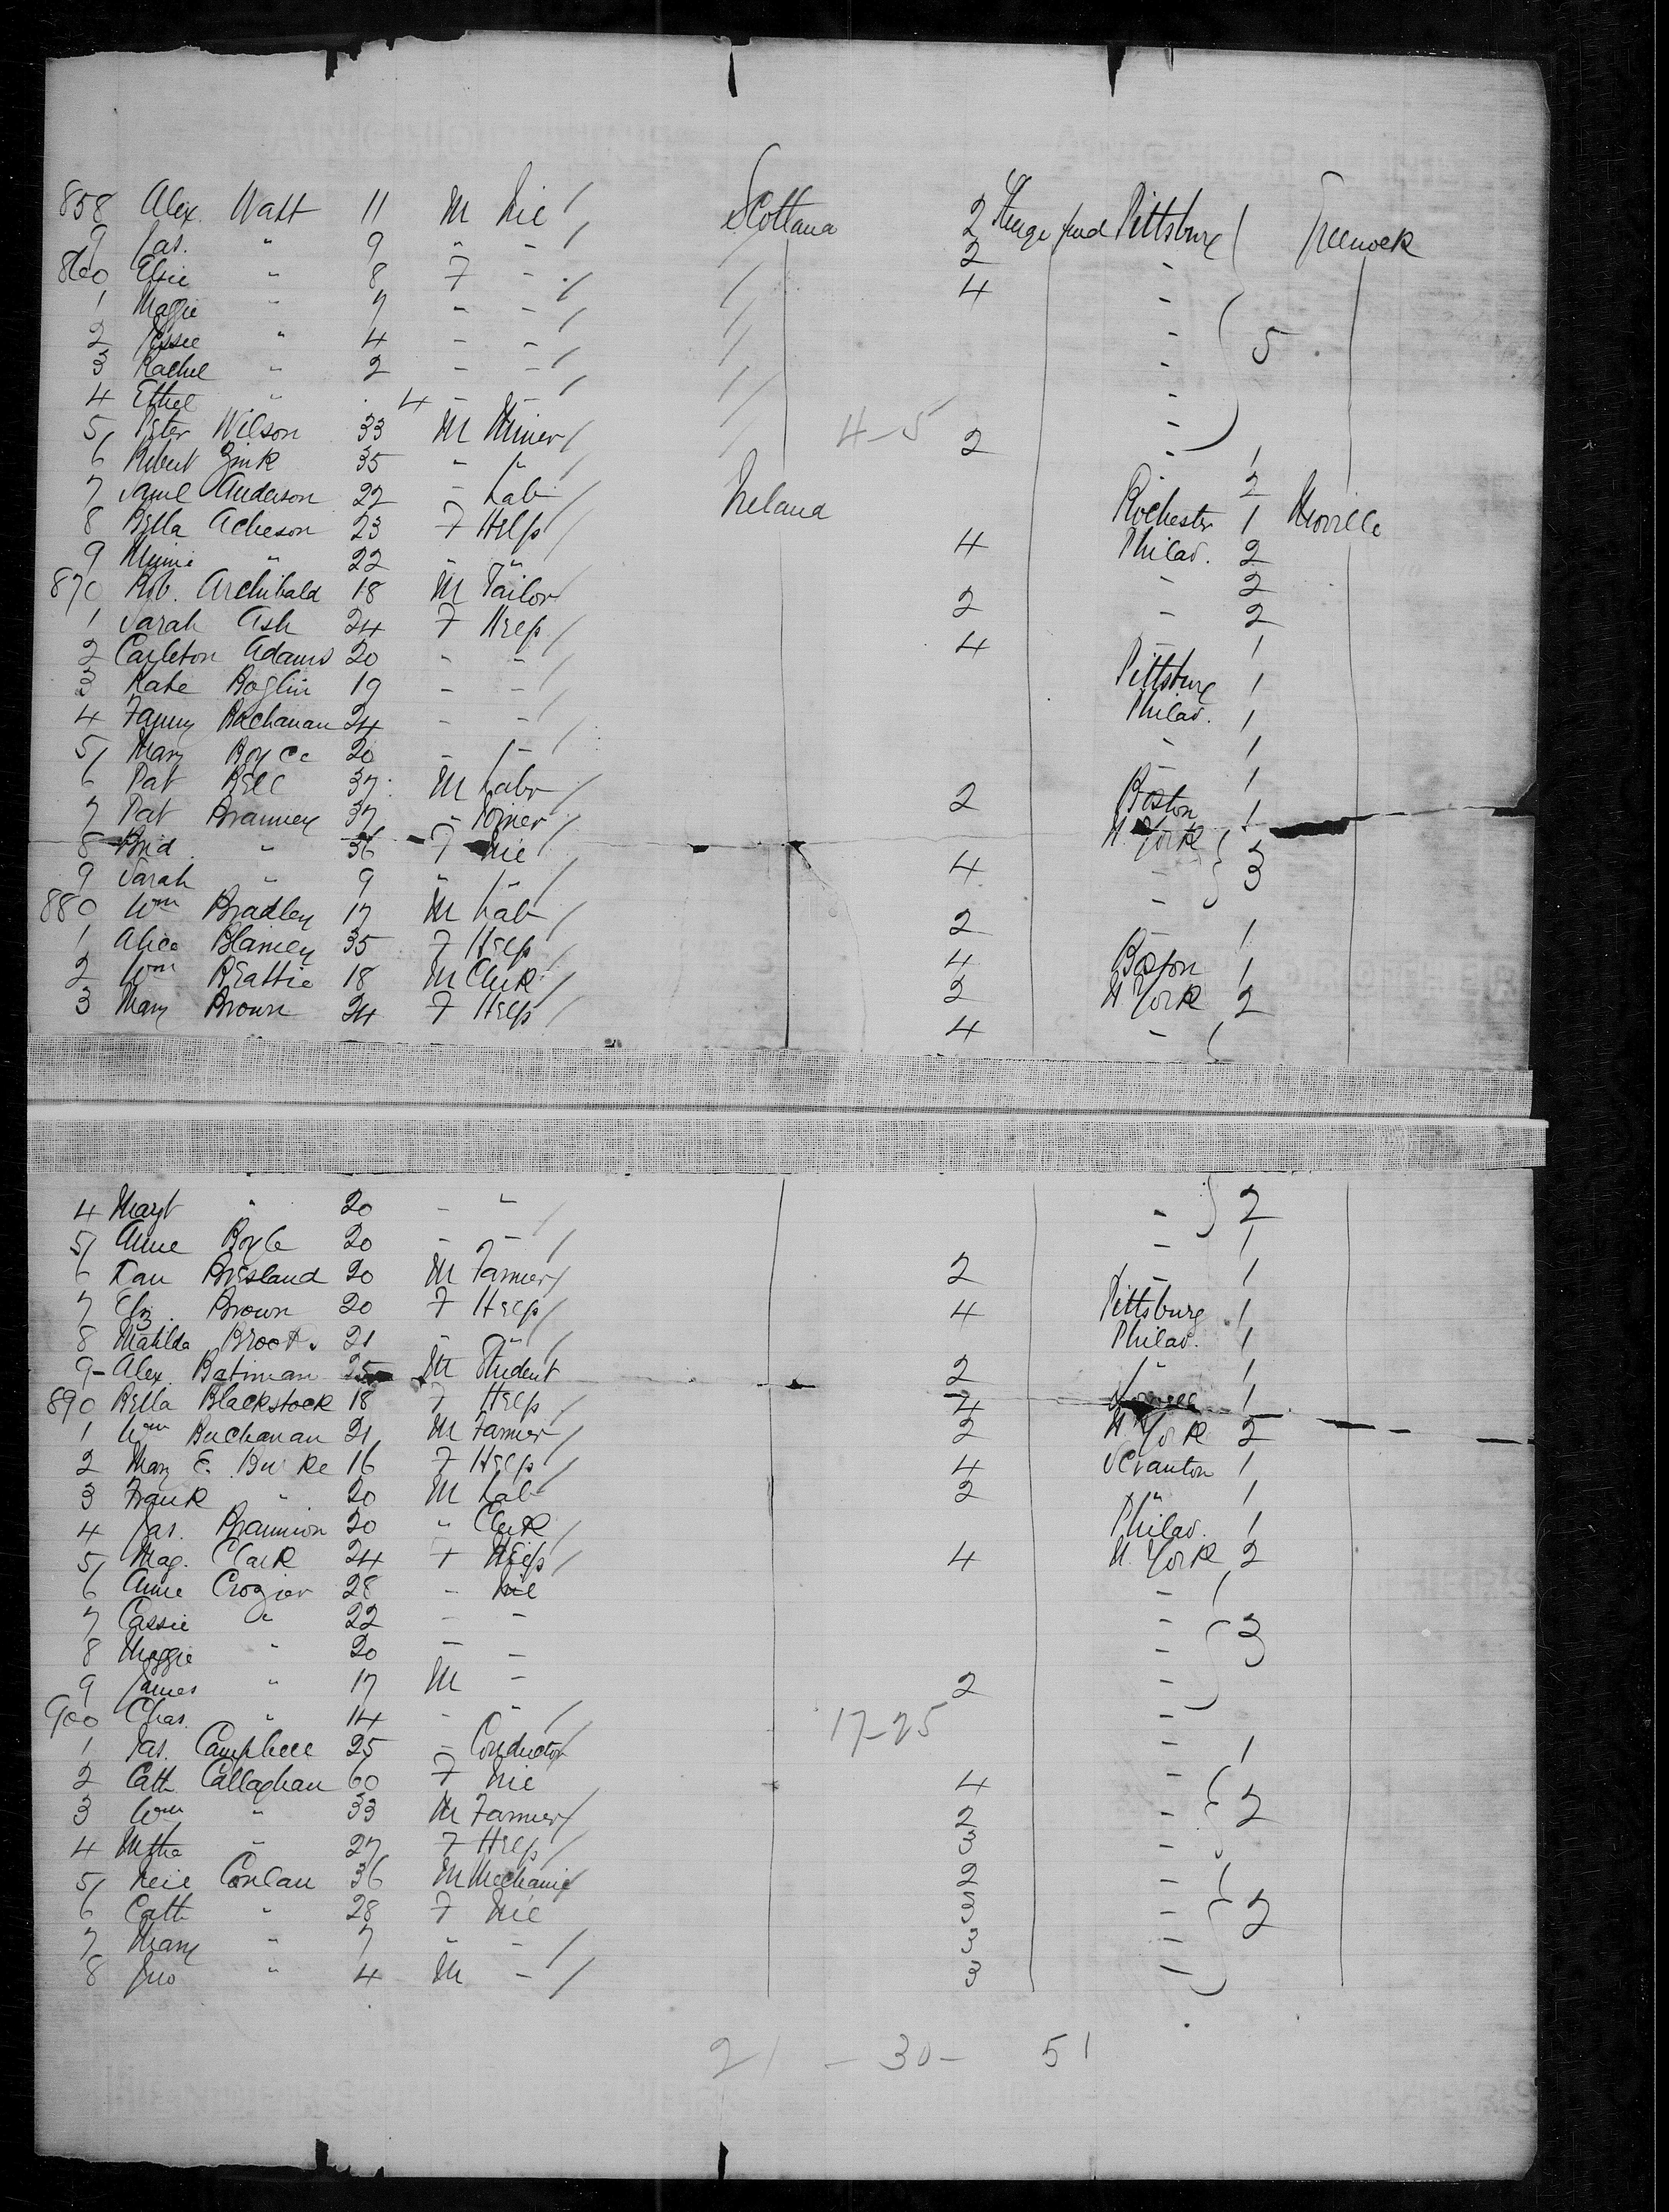 858 Alex. Watt 11 M Nil / Scotland 2 Pittsburg Greenock
9 Jas. " 9 " - / 2 -
860 Elsie " 8 F - / 4 -
1 Maggie " 7 - - / -
2 Jessie " 4 - - / - 5
3 Rachel " 2 - - / -
4 Ethel " 4 - - -
5 Peter Wilson 33 M Miner / 4-5 2 - 1
6 Robert 35 - " / 2
7 Saml Anderson 22 - Lab / Ireland Rochester 1 Moville
8 Bella Acheson 23 F Help / 4 Philad. 2
9 Minnie " 22 " " - 2
870 Rob. Archibald 18 M Tailor 2 - 2
1 Sarah Ash 24 F Help / 4 - 1
2 Carleton Adams 20 - - / Pittsburg 1
3 Kate Boglin 19 - - / Philad. 1
4 Fanny Buchanan 24 - - / - 1
5 Mary Boyce 20 - - 1
6 Pat Bell 37 M Labr / 2 Boston 1
7 Pat Branney 37 " Joiner / N. York
8 Brid " 36 F Nil / 4 - 3
9 Sarah " 9 " " / -
880 Wm Bradley 17 M Lab / 2 - 1
1 Alice Blamey 35 F Help / 4 Boston 1
2 Wm Beattie 18 M Clerk / 2 N York 2
3 Mary Brown 24 F Help / 4 -
4 Margt " 20 - " / - 2
5 Annie Boyle 20 - - / - 1
6 Dan Bresland 20 M Farmer / 2 - 1
7 Eliz. Brown 20 F Help / 4 Pittsburg 1
8 Matilda 21 - " / Philad. 1
9 - Alex. Batiman 25 M Student 2 " 1
890 Bella Blackstock 18 F Help / 4 1
1 Wm Buchanan 21 M Farmer / 2 N York 2
2 Mary E. Burke 16 F Help / 4 Scranton 1
3 Frank " 20 M Lab 2 " 1
4 Jas. Brannion 20 " Clerk / Philad. 1
5 Mag. Clark 24 F Help / 4 N. York 2
6 Annie Crozier 28 - Nil -
7 Cassie " 22 - - - 3
8 Maggie " 20 - - -
9 James " 17 M - 2 -
900 Chas. " 14 - " / 17-25 -
1 Jas. Campbell 25 - Conductor - 1
2 Cath Callaghan 60 F Nil 4 -
3 Wm " 33 M Farmer / 2 - 2
4 Mtha " 27 F Help / 3 -
5 Neil Conlan 36 M Mechanic 2 -
6 Cath " 28 F Nil 3 - 2
7 Mary " 7 " - / 3 -
8 Jno " 4 M - / 3 -
21 - 30 - 51